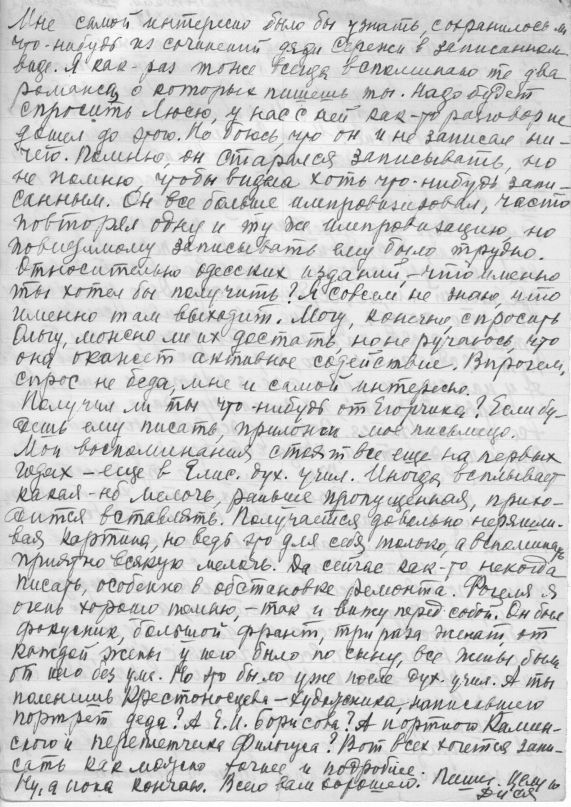 Мне самой интересно было бы узнать, сохранилось ли
что-нибудь из сочинений дяди Сережи в записанном
виде. Я как-раз тоже всегда вспоминаю те два
романса, о которых пишешь ты. Надо будет
спросить Люсю, у нас с ней как-то разговор не
дошел до этого. Но боюсь, что он и не записал ни-
чего. Помню, он старался записывать, но
не помню, чтобы видела хоть что-нибудь запи-
санным. Он все больше импровизировал, часто
повторял одну и ту же импровизацию, но
повидимому записывать ему было трудно.
Относительно одесских изданий, – что именно
ты хотел бы получить? Я совсем не знаю, что
именно там выходит. Могу, конечно, спросить
Ольгу, можно ли их достать, но не ручаюсь, что
она окажет активное содействие. Впрочем,
спрос не беда, мне и самой интересно.
Получил ли ты что-нибудь от Егорчика? Если бу-
дешь ему писать, приложи мое письмецо.
Мои воспоминания стоят все еще на первых
годах – еще в Елис. дух. учил. Иногда всплывает
какая-нб мелочь, раньше пропущенная, прихо-
дится вставлять. Получается довольно неряшли-
вая картина, но ведь это для себя только, а вспоминать
приятно всякую мелочь. Да сейчас как-то некогда
писать, особенно в обстановке ремонта. Фогеля я
очень хорошо помню, – так и вижу перед собой. Он был
фокусник, большой франт, три раза женат, от
каждой жены у него было по сыну, все жены были
от него без ума. Но это было уже после дух. учил. А ты
помнишь Крестоносцева – художника, написавшего
портрет деда? А Е.И. Борисова? А портного Камин-
ского и переплетчика Фильгуса? Вот всех хочется запи-
сать как можно точнее и подробнее.
Ну, а пока кончаю. Всего вам хорошего. Пиши. Целую
Дуся